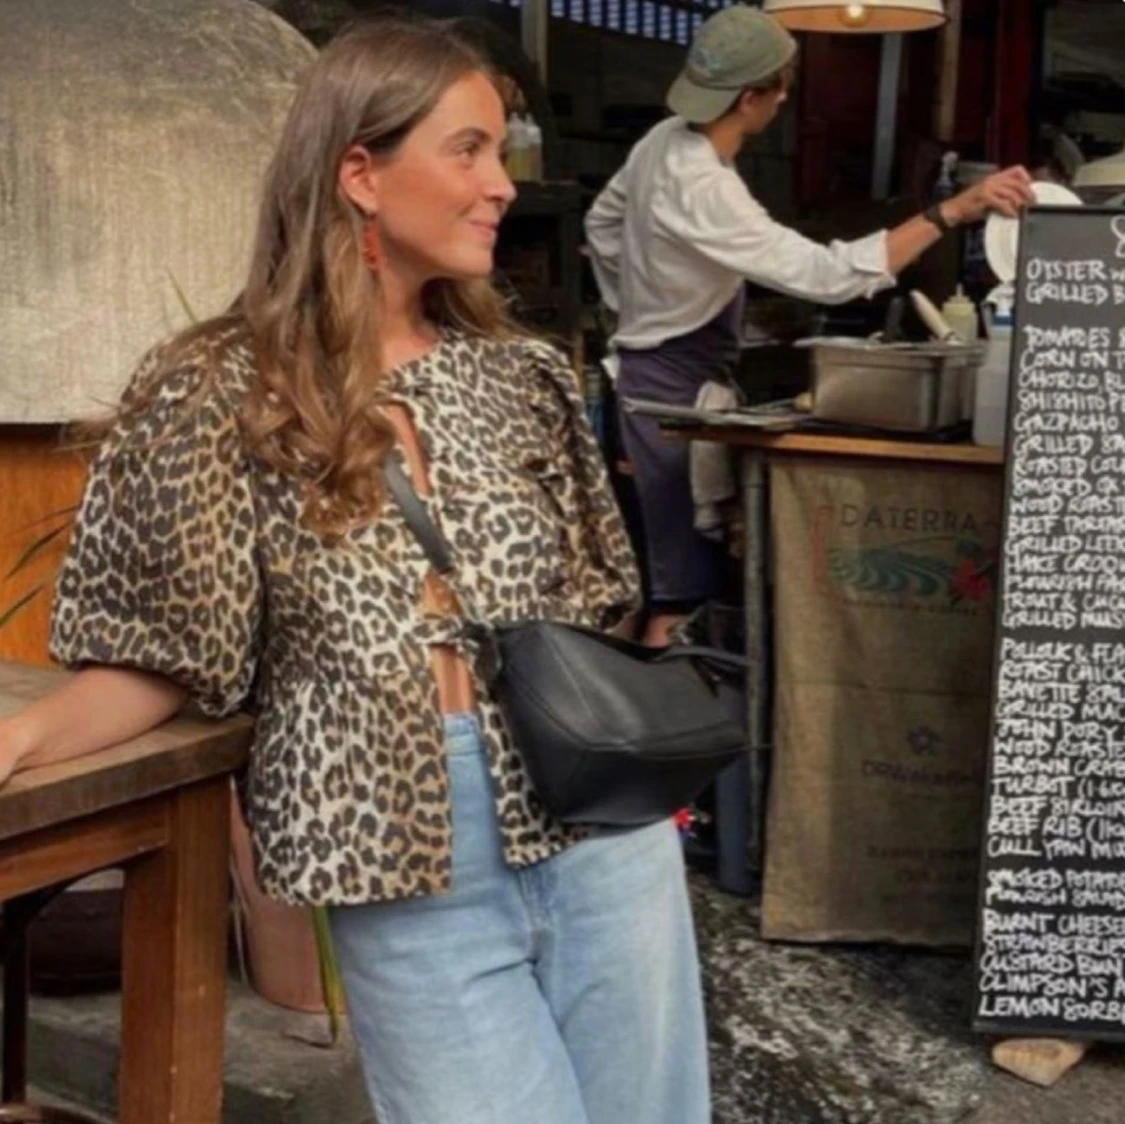 DATERRA
OYSTER
GRILLED B
TOMATOES &
CORN ON T
CHORIZO BU
SHISHITO P
GAZPACHO
GRILLED SA
ROASTED COU
SMOKED
WOOD ROAST
BEEF TARTAR
GRILLED LEEK
HAKE CROQ
FLOURISH
TROUT & CUCU
GRILLED MUS
POLLOCK & FLA
ROAST CHICK
BAVETTE SAL
GRILLED MAC
JOHN DORY
WOOD ROASTE
BROWN CRAB
TURBOT (1.6K
BEEF SIRLOIN
BEEF RIB (1KG
SMOKED POTATO
FLOURISH SALAD
BURNT CHEESE
STRAWBERRIES
CUSTARD BUN
CLIMPSON'S A
LEMON SORB